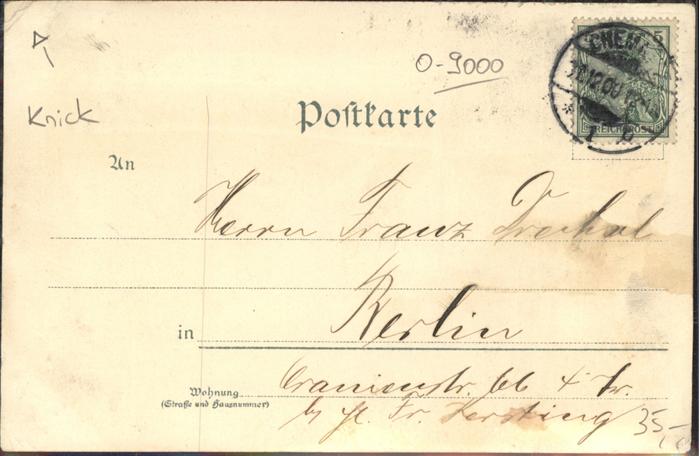 O-9000
5
CHEM
12.00
REICHSPOST
Knick
Postkarte
An
Herrn Franz
in Berlin
Wohnung
(Straße und Hausnummer)
Oranienstr. 66 4 Tr.
Fr. Kersting
35,-